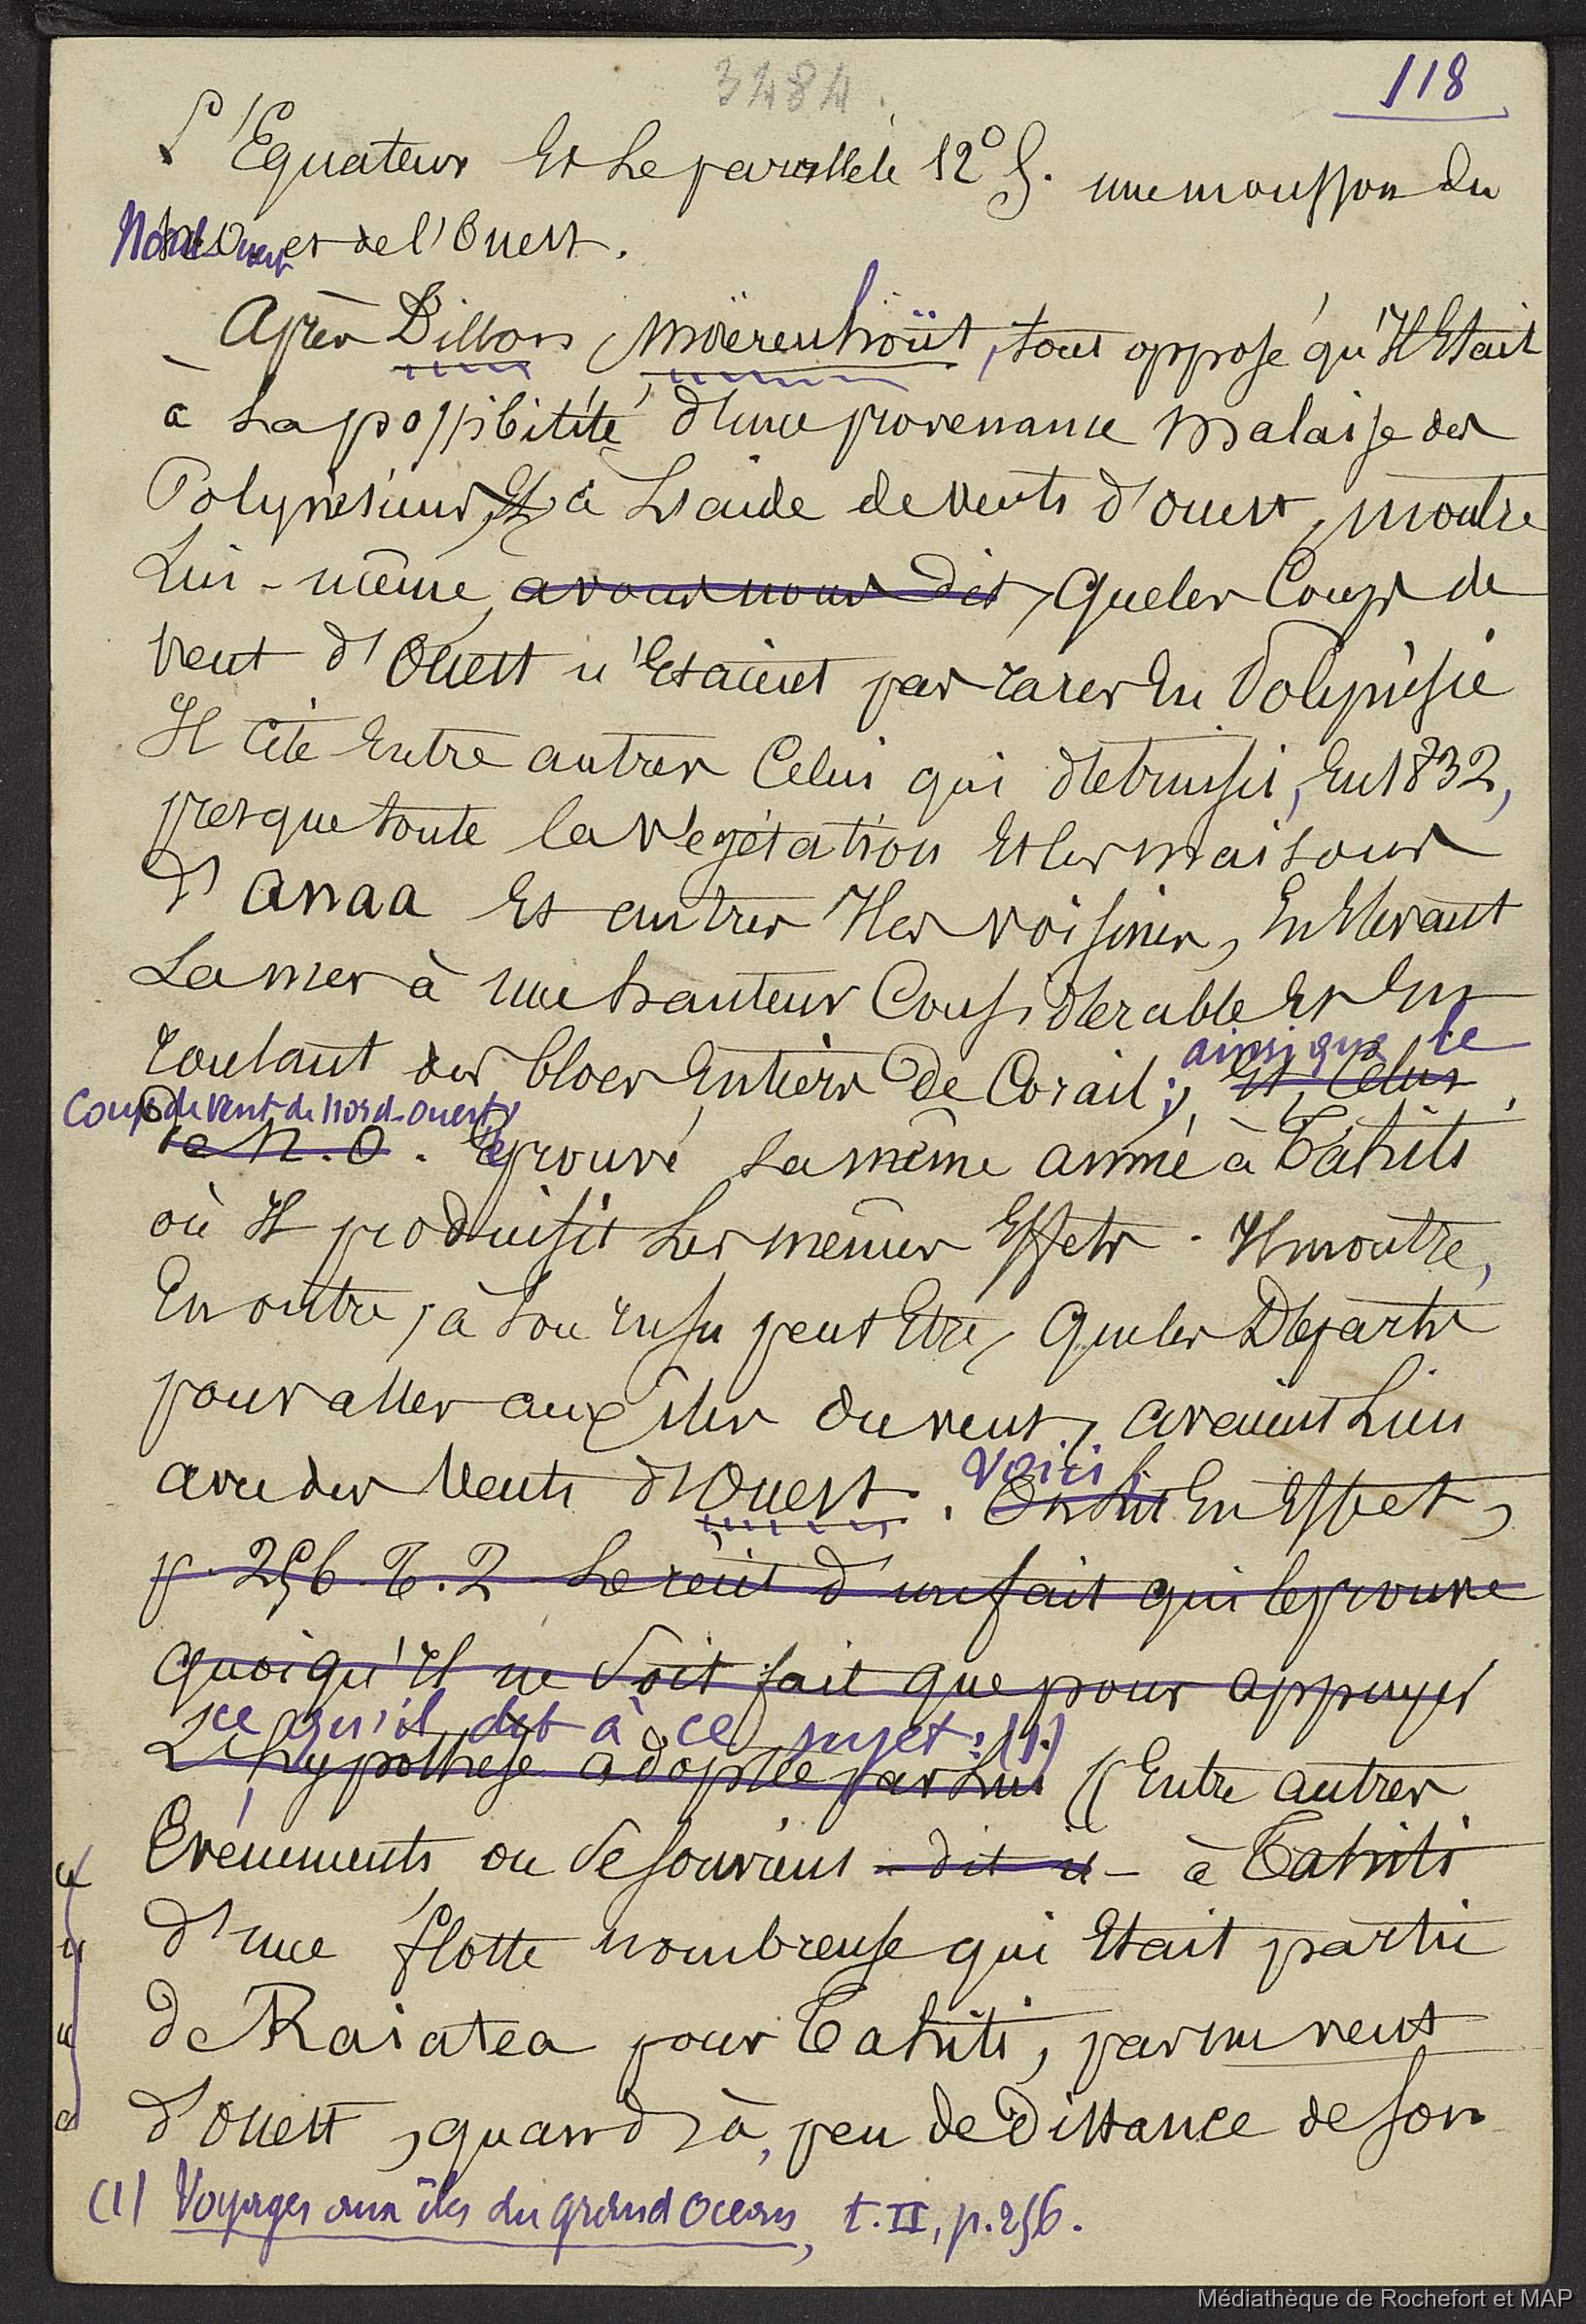 3484.
118
L'Equateur et le parallèle 12° S. une mousson du
Nord-ouest et de l'Ouest.
Après Dillon, Moërenhoüt, tout opposé qu'il était
à la possibilité d'une provenance Malaise des
Polynésiens, et à l'aide de vents d'ouest, montre
lui-même, avons nous dit, que les coups de
vent d'Ouest n'étaient pas rares en Polynésie
Il cite entre autres celui qui détruisit, en 1832,
presque toute la végétation et les maisons
d'Anaa et autres îles voisines, en élevant
la mer à une hauteur considérable et en
roulant des blocs entiers de corail; et celui
ainsi que le
coup de vent de nord-ouest,
de N.O. éprouvé la même année à Tahiti
où il produisit les mêmes effets. Il montre,
en outre, à son insu peut être, que les départs
pour aller aux îles du vent, avaient lieu
avec des vents d'Ouest. Voici On lit en effet,
p. 256. T. 2 le récit d'un fait qui le prouve
quoiqu'il ne soit fait que pour appuyer
ce qu'il dit à ce sujet: (1)
L'hypothèse adoptée par lui (( Entre autres
Evénements on se souvient - dit il - à Tahiti
d'une flotte nombreuse qui était partie
de Raiatea pour Tahiti, par un vent
d'ouest, quand, à peu de distance de son
(1) Voyages aux îles du grand Océan, t. II, p. 256.
Médiathèque de Rochefort et MAP